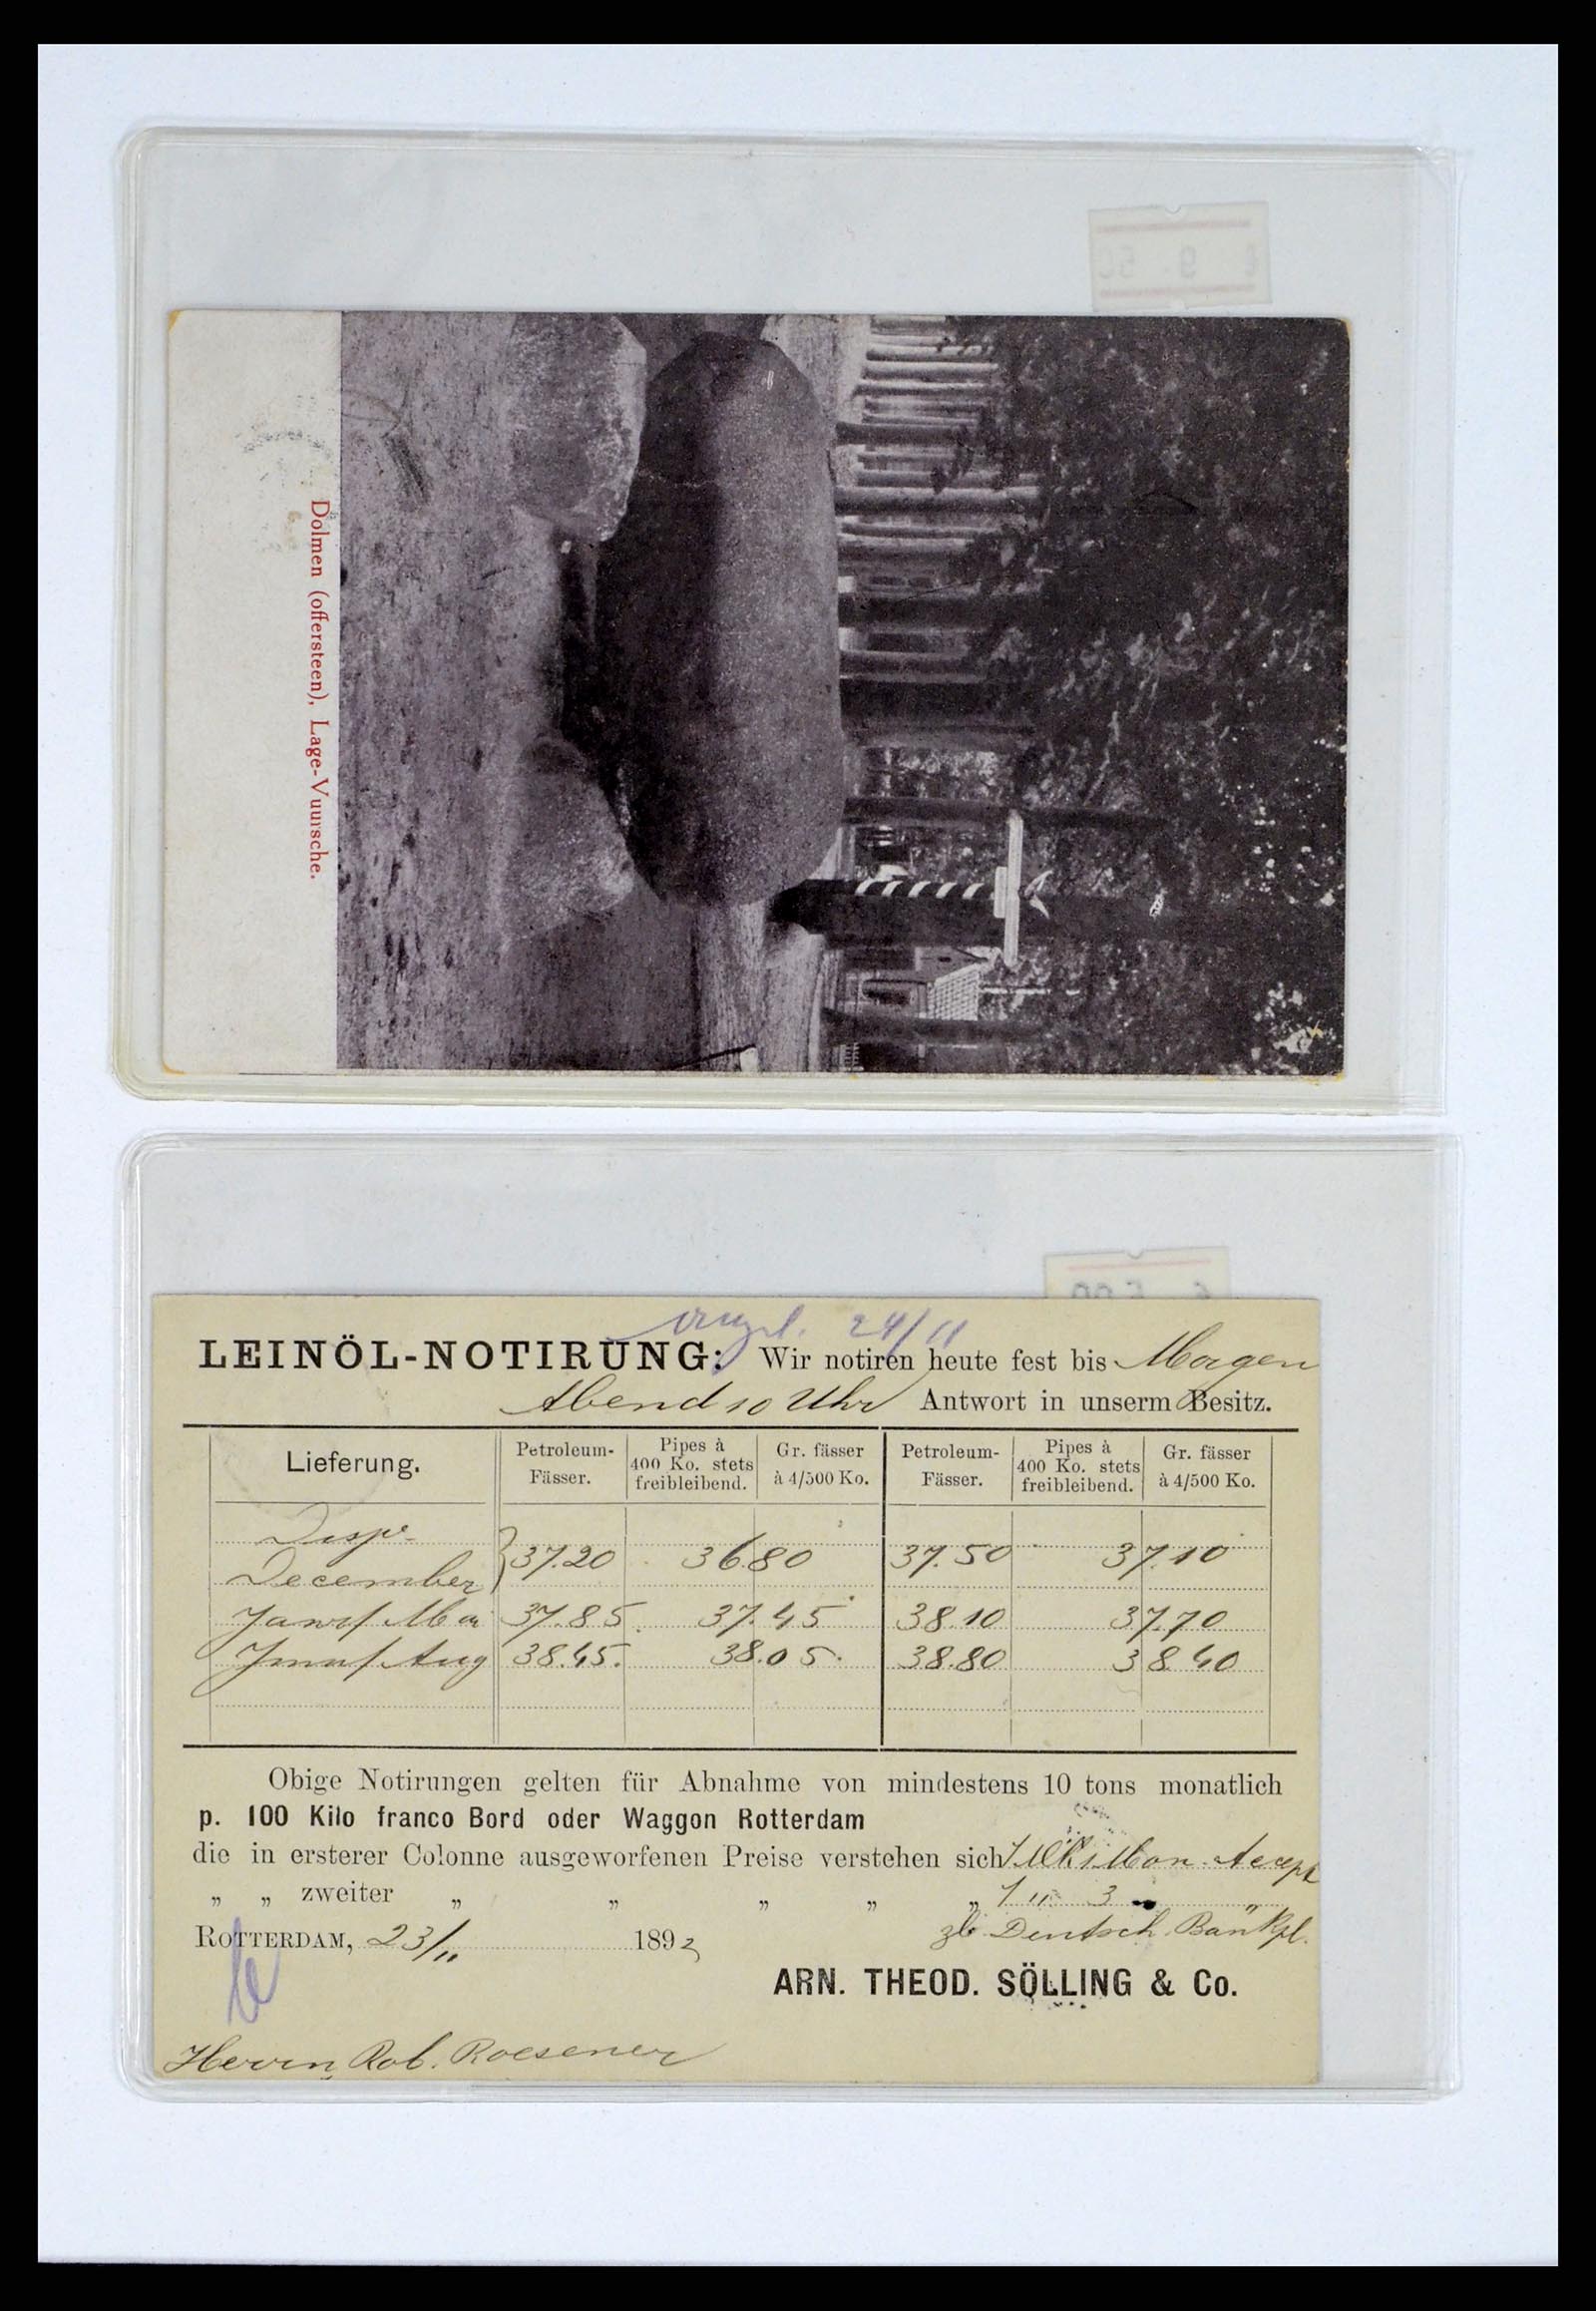 Dolmen (offersteen), Lage-Vuursche.
24/11
LEINÖL-NOTIRUNG: Wir notiren heute fest bis Morgen
Abend 10 Uhr Antwort in unserm Besitz.
Lieferung. Petroleum-Fässer. Pipes à 400 Ko. stets freibleibend. Gr. fässer à 4/500 Ko. Petroleum-Fässer. Pipes à 400 Ko. stets freibleibend. Gr. fässer à 4/500 Ko.
December 37.20 36.80 37.50 37.10
37.85 37.45 38.10 37.70
Aug 38.45 38.05 38.80 38.40
Obige Notirungen gelten für Abnahme von mindestens 10 tons monatlich
p. 100 Kilo franco Bord oder Waggon Rotterdam
die in ersterer Colonne ausgeworfenen Preise verstehen sich Accept
„ „ zweiter „ „ „ „ „ 3
ROTTERDAM, 23/11 1893
ARN. THEOD. SÖLLING & Co.
Herrn Rob. Roesener